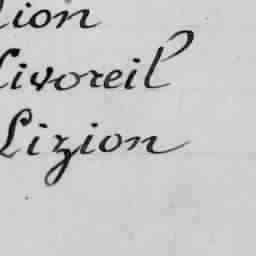 lion
Livoreil
Lizion